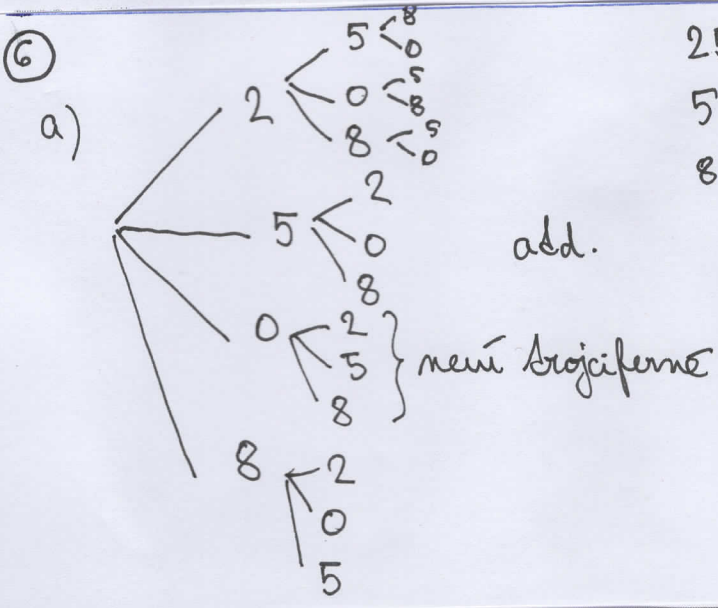 6
a)
2
5
8
0
0
5
8
8
5
0
5
2
0
8
0
2
5
8
není trojciferné
8
2
0
5
25
5
8
atd.